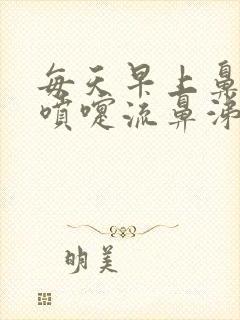 每天早上鼻
喷嚏流鼻涕
明美